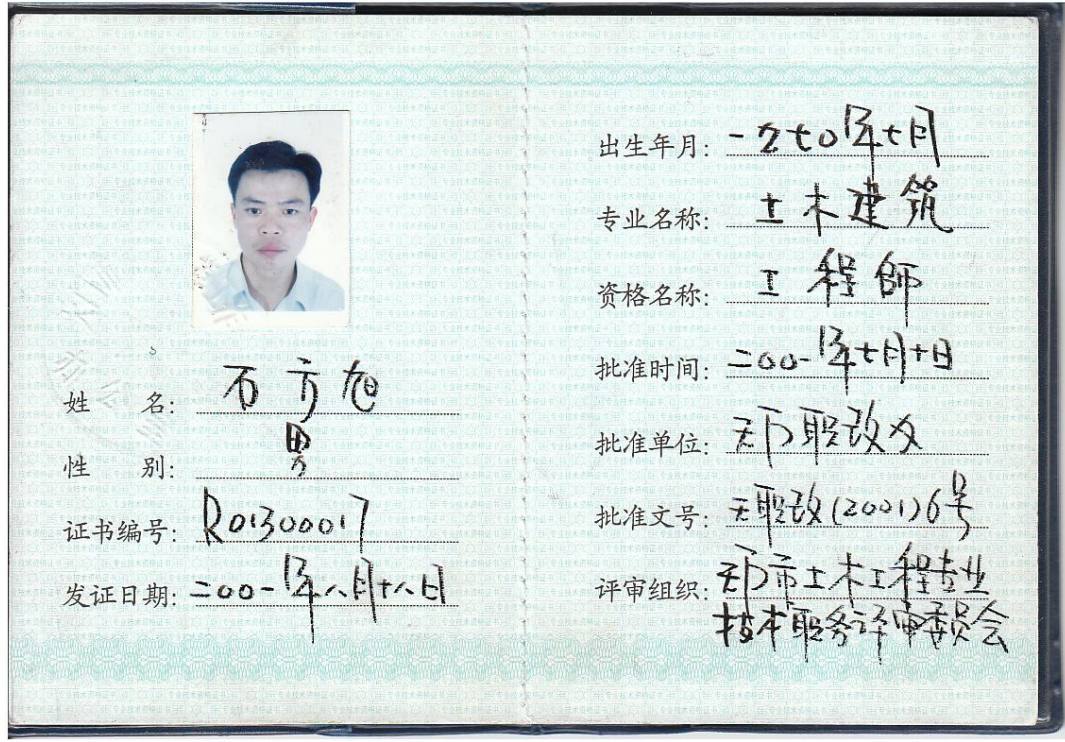 姓 名: 石方旭
性 别: 男
证书编号: R01300017
发证日期: 二00一年八月十八日
出生年月: 一九七0年七月
专业名称: 土木建筑
资格名称: 工程師
批准时间: 二00一年七月十日
批准单位: 职改办
批准文号: 职改(2001)6号
评审组织: 市土木工程专业
技术职务评审委员会